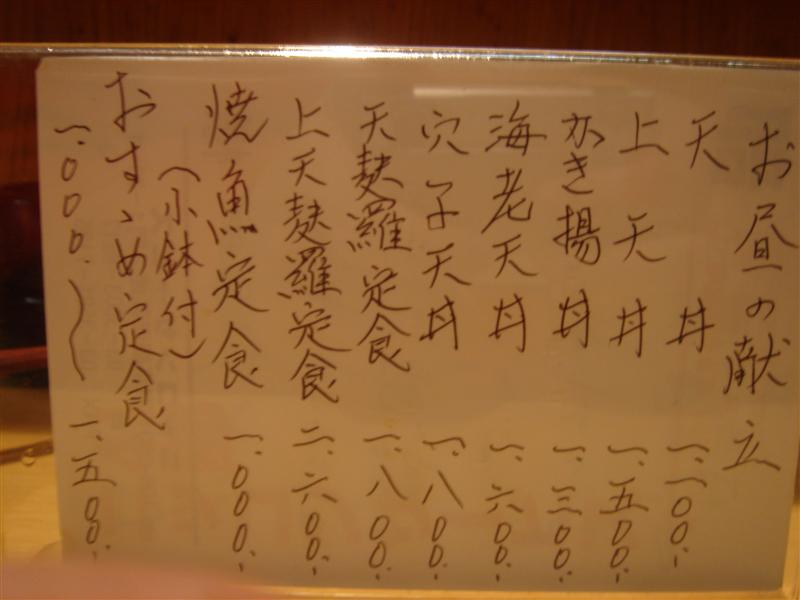 お昼の献立
天丼 一、一〇〇、
上天丼 一、五〇〇、
かき揚丼 一、三〇〇、
海老天丼 一、六〇〇、
穴子天丼 一、八〇〇、
天麸羅定食 一、八〇〇、
上天麸羅定食 二、六〇〇、
焼魚定食 一、〇〇〇、
(小鉢付)
おすゝめ定食
一、〇〇〇、〜一、五〇〇、